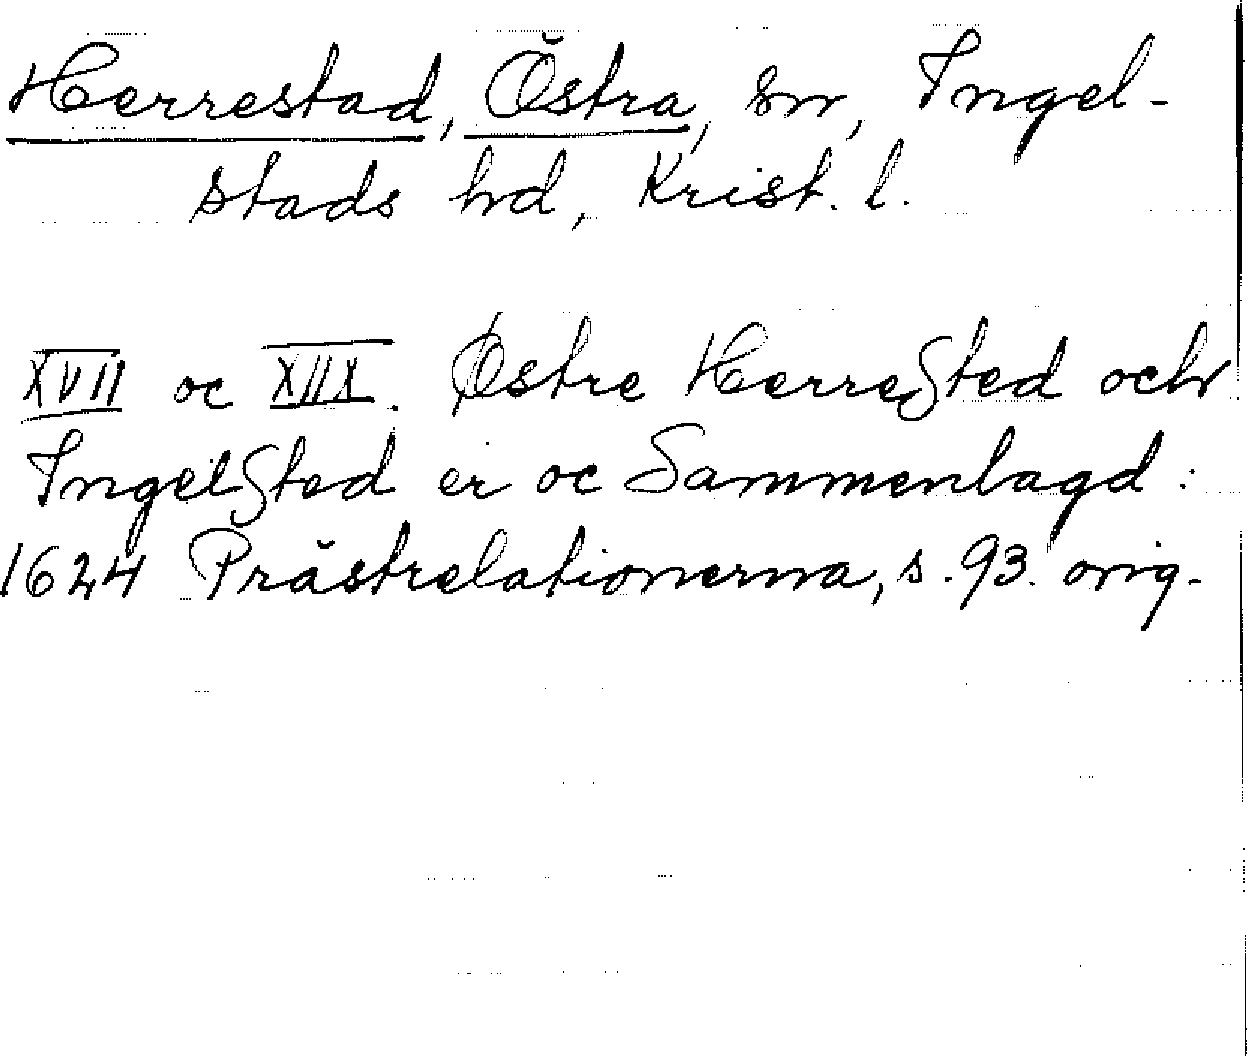 Herrestad, Östra, sn, Ingel-
stads hd, Krist. l.
XVII oc XIIX. Østre Herrested och
Ingelsted er oc Sammenlagd:
1624 Prästrelationerna, s. 93. orig.